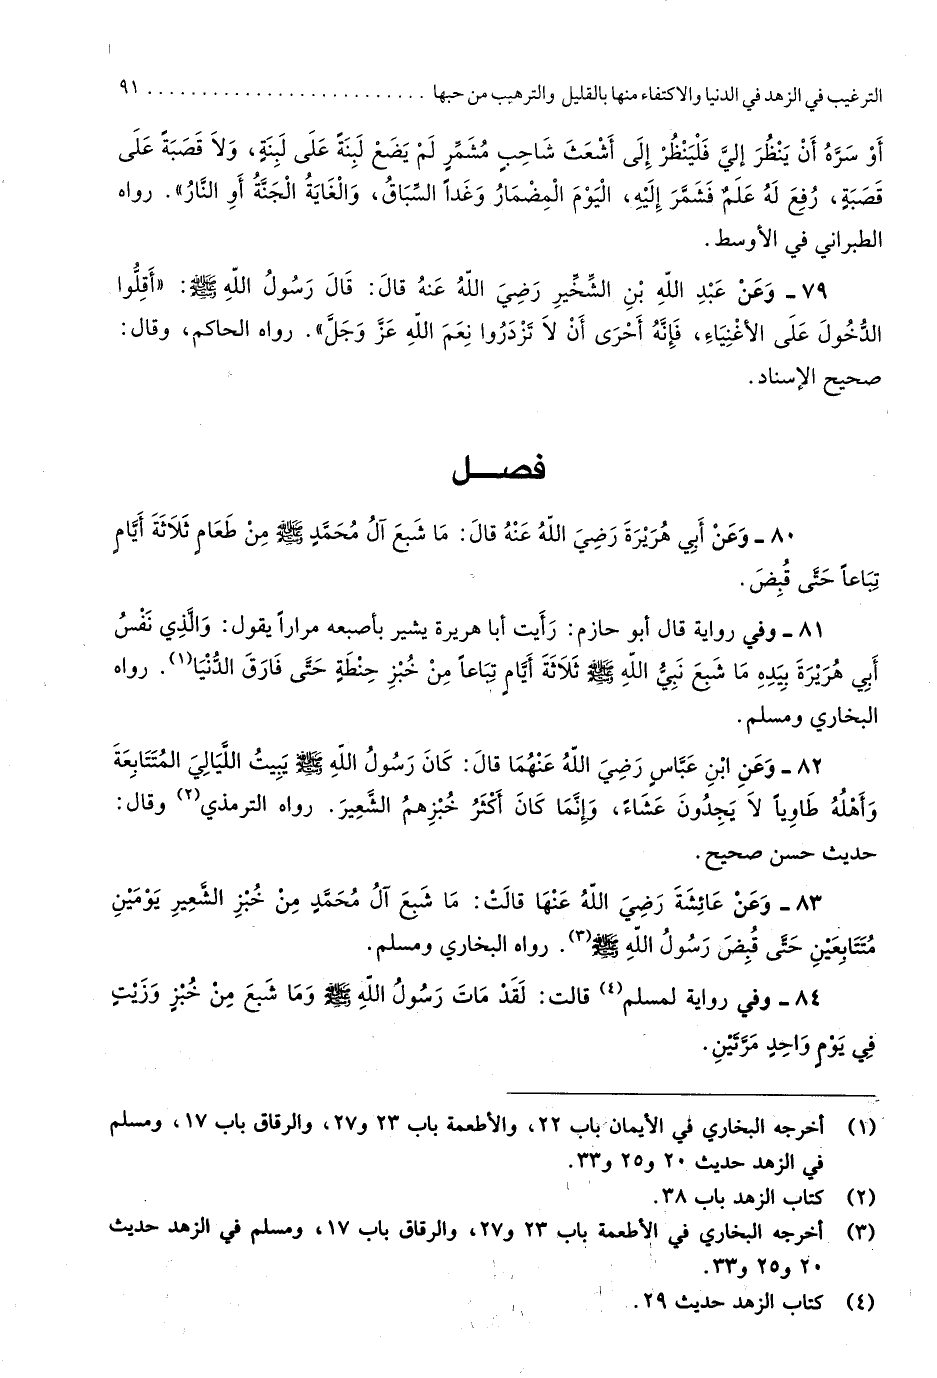 الترغيب في الزهد في الدنيا والاكتفاء منها بالقليل والترهيب من حبها . . . . . . . . . . . . . . . . . . . . . . . . . ٩١
أَوْ سَرَّهُ أَنْ يَنْظُرَ إليَّ فَلْيَنْظُرْ إِلَى أَشْعَثَ شَاحِبٍ مُشَمِّرٍ لَمْ يَضَعْ لَبِنَةً عَلَى لَبِنَةٍ، وَلاَ قَصَبَةً عَلَى
قَصَبَةٍ، رُفِعَ لَهُ عَلَمٌ فَشَمَّرَ إِلَيْهِ، الْيَوْمَ الْمِضْمَارُ وَغَداً السِّبَاقُ، وَالْغَايَةُ الْجَنَّةُ أَوِ النَّارُ». رواه
الطبراني في الأوسط.
٧٩ ـ وَعَنْ عَبْدِ اللّهِ بْنِ الشِّخِّيرِ رَضِيَ اللّهُ عَنهُ قالَ: قَالَ رَسُولُ اللّهِ ﷺ: «أَقِلُّوا
الدُّخُولَ عَلَى الأغْنِيَاءِ، فَإِنَّهُ أَحْرَى أَنْ لاَ تَزْدَرُوا نِعَمَ اللّهِ عَزَّ وَجَلَّ». رواه الحاكم، وقال:
صحيح الإسناد.
فصــل
٨٠ ـ وَعَنْ أَبِي هُرَيْرَةَ رَضِيَ اللّهُ عَنْهُ قالَ: مَا شَبِعَ آلُ مُحَمَّدٍ ﷺ مِنْ طَعَامٍ ثَلاَثَةَ أَيَّامٍ
تِبَاعاً حَتَّى قُبِضَ.
٨١ ـ وفي رواية قال أبو حازم: رَأَيت أبا هريرة يشير بأصبعه مراراً يقول: وَالَّذِي نَفْسُ
أَبِي هُرَيْرَةَ بِيَدِهِ مَا شَبِعَ نَبِيُّ اللّهِ ﷺ ثَلاَثَةَ أَيَّامٍ تِبَاعاً مِنْ خُبْزِ حِنْطَةٍ حَتَّى فَارَقَ الدُّنْيَا(١). رواه
البخاري ومسلم.
٨٢ ـ وَعَنِ ابْنِ عَبَّاسٍ رَضِيَ اللّهُ عَنْهُمَا قالَ: كَانَ رَسُولُ اللّهِ ﷺ يَبِيتُ اللَّيَالِيَ المُتَتَابِعَةَ
وَأَهْلُهُ طَاوِياً لاَ يَجِدُونَ عَشَاءً، وَإِنَّمَا كَانَ أَكْثَرُ خُبْزِهِمُ الشَّعِيرَ. رواه الترمذي(٢) وقال:
حديث حسن صحيح.
٨٣ ـ وَعَنْ عَائِشَةَ رَضِيَ اللّهُ عَنْهَا قالَتْ: مَا شَبِعَ آلُ مُحَمَّدٍ مِنْ خُبْزِ الشَّعِيرِ يَوْمَيْنِ
مُتَتَابِعَيْنِ حَتَّى قُبِضَ رَسُولُ اللّهِ ﷺ(٣). رواه البخاري ومسلم.
٨٤ ـ وفي رواية لمسلم(٤) قالت: لَقَدْ مَاتَ رَسُولُ اللّهِ ﷺ وَمَا شَبِعَ مِنْ خُبْزٍ وَزَيْتٍ
فِي يَوْمٍ وَاحِدٍ مَرَّتَيْنِ.
(١) أخرجه البخاري في الأيمان باب ٢٢، والأطعمة باب ٢٣ و٢٧، والرقاق باب ١٧، ومسلم
في الزهد حديث ٢٠ و٢٥ و٣٣.
(٢) كتاب الزهد باب ٣٨.
(٣) أخرجه البخاري في الأطعمة باب ٢٣ و٢٧، والرقاق باب ١٧، ومسلم في الزهد حديث
٢٠ و٢٥ و٣٣.
(٤) كتاب الزهد حديث ٢٩.